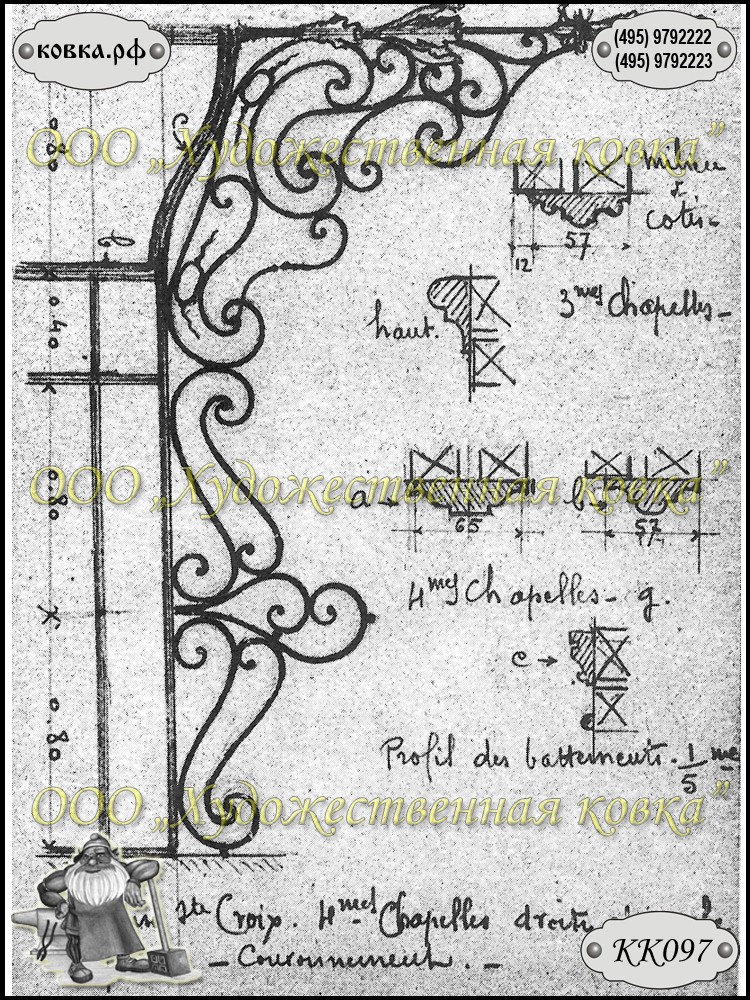 ковка.рф
(495) 9792222
(495) 9792223
ООО „Художественная ковка”
0.80
c
milieu
&
cotés-
57
12
b
3mes Chapelles-
0.40
haut.
ООО „Художественная ковка”
0.80
a
65
b
57
4mes Chapelles- g.
c
0.80
Profil des battements. 1/5 me
ООО „Художественная ковка”
Ste Croix. 4mes Chapelles droite
- Couronnement. -
КК097